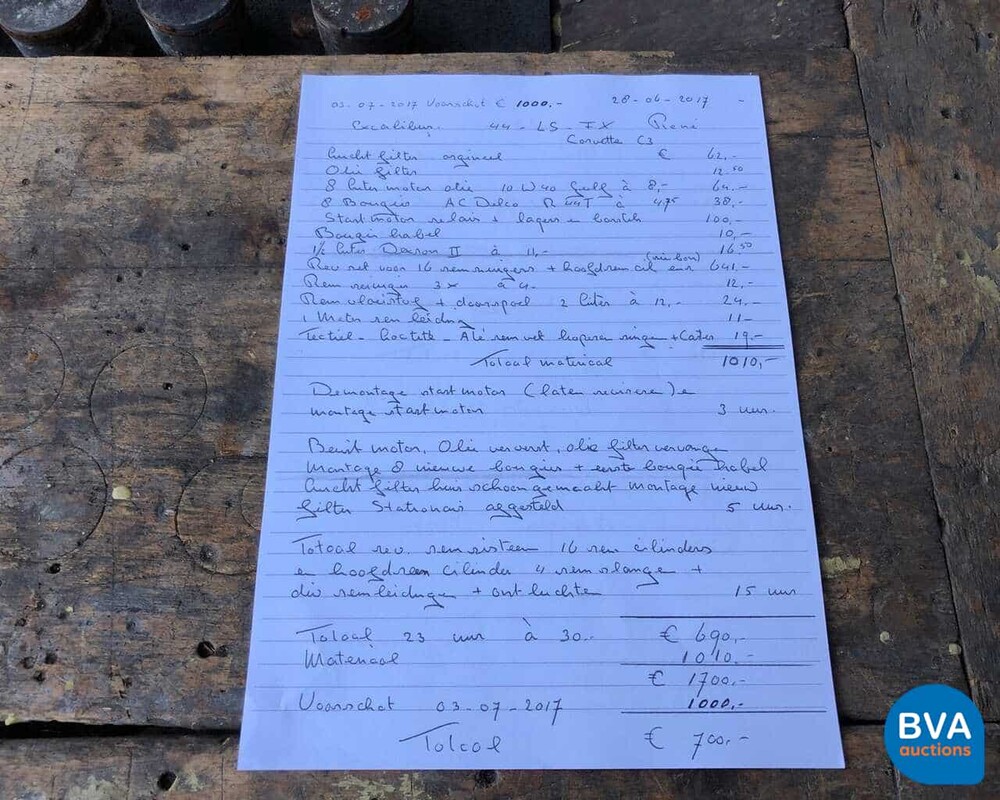 03-07-2017 Voorschot € 1000,- 28-06-2017 -
Excalibur. 44-LS-FX René
Corvette C3
Lucht filter orgineel € 62,-
Olie filter 12.50
8 liter motor olie 10W40 Gulf à 8,- 64.-
8 Bougies AC Delco R44T à 4.75 38,-
Startmotor relais + lagers en borstels 100,-
Bougie kabel 10,-
1½ liter Dexron II à 11,- 16.50
(zie bon)
Rev set voor 16 remzuigers + hoofdremcil enz 641.-
Rem reiniger 3x à 4- 12,-
Rem vloeistof + doorspoel 2 liter à 12,- 24.-
1 Meter rem leiding 11-
Tectiel - Loctite - Até rem vet koperen ringen + Carter 19,-
Totaal materiaal 1010,-
Demontage startmotor (laten reviseren) en
montage startmotor 3 uur.
Beurt motor, Olie ververst, olie filter vervangen
Montage 8 nieuwe bougies + eerste bougie kabel
Lucht filter huis schoongemaakt montage nieuw
filter Stationair afgesteld 5 uur.
Totaal rev. remsisteem 16 rem cilinders
en hoofdrem cilinder 4 remslangen +
div remleidingen + ontluchten 15 uur
Totaal 23 uur à 30.- € 690,-
Materiaal 1010.-
€ 1700,-
Voorschot 03-07-2017 1000,-
Totaal € 700,-
BVA
auctions